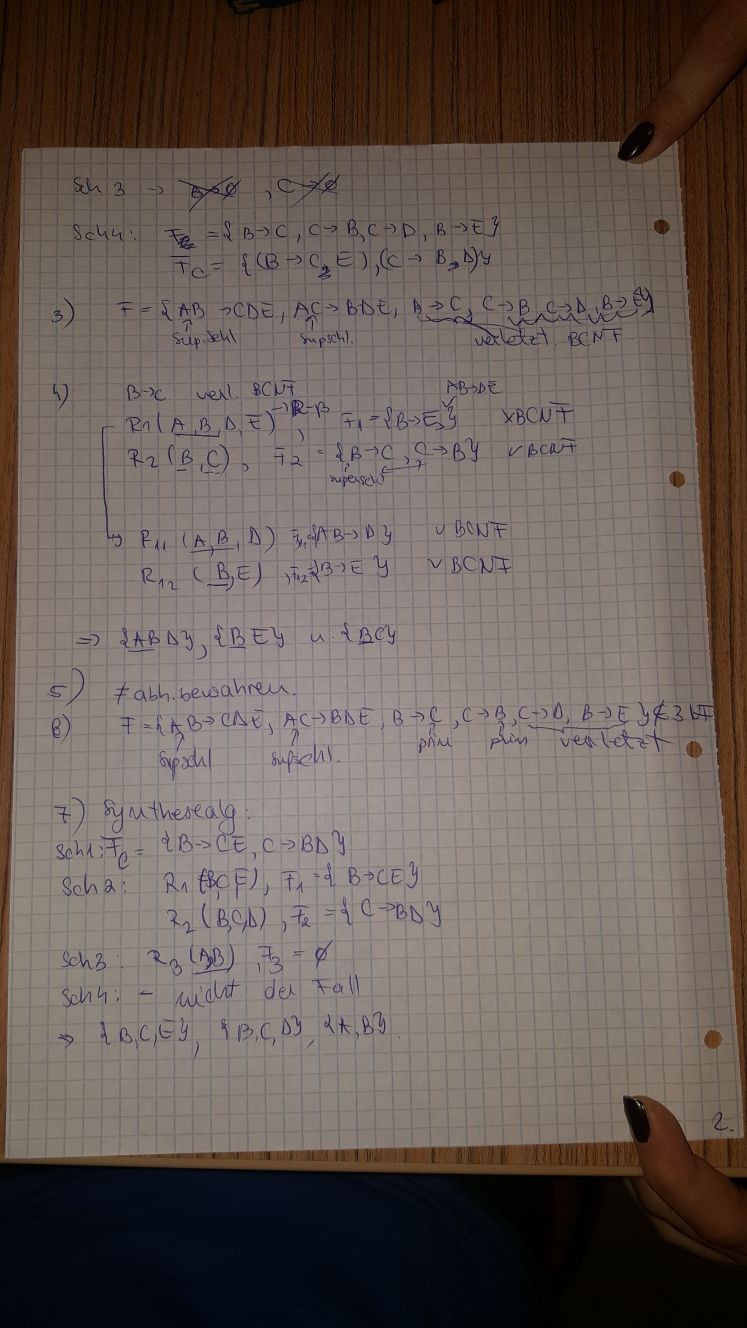 Sch 3 → B→∅ , C→∅
Sch4: Fc = {B→C, C→B, C→D, B→E}
Fc = {(B→C,E),(C→B,D)}
3) F = {AB→CDE, AC→BDE, B→C, C→B, C→D, B→E}
Sup.schl supschl. verletzt BCNF.
4) B→C verl. BCNF AB→DE
R1(A,B,D,E) →R-B , F1={B→E,} xBCNF
R2(B,C), F2 = {B→C, C→B} ✓BCNF
superschl
R11 (A,B,D) F11={AB→D} ✓BCNF
R12 (B,E) ,F12={B→E} ✓BCNF
=> {ABD}, {BE} u. {BC}
5) ≠abh.bewahren.
6) F={AB→CDE, AC→BDE, B→C, C→B, C→D, B→E} ∉ 3NF
supschl supschl. prim prim verletzt
7) Synthesealg:
Sch1: Fc = {B→CE, C→BD}
Sch2: R1(BCE), F1={B→CE}
R2(B,C,D), F2={C→BD}
Sch3: R3(A,B), F3=∅
Sch4: - nicht der Fall
=> {B,C,E}, {B,C,D}, {A,B}.
2.